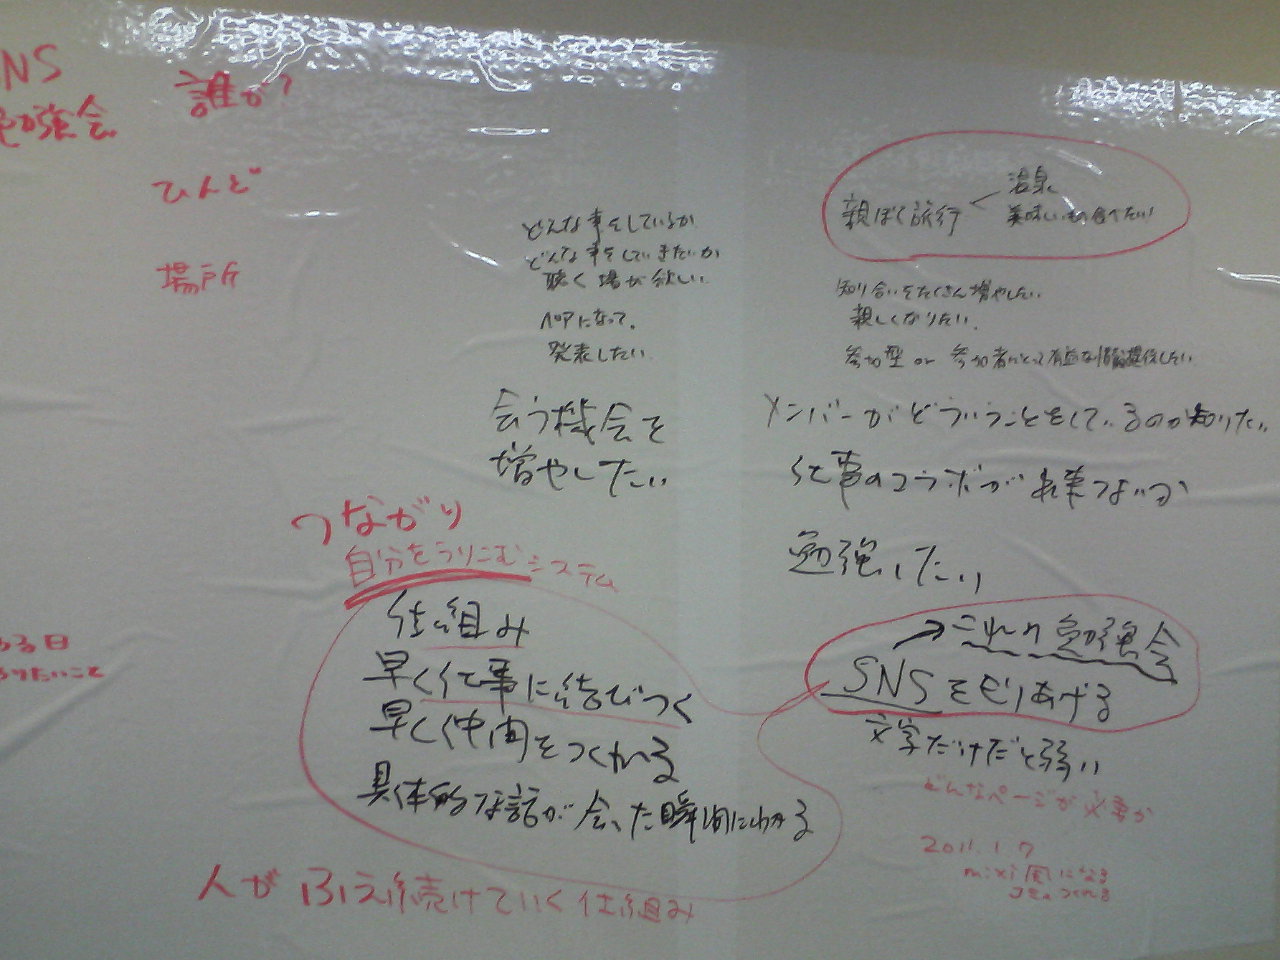 NS
勉強会
誰が?
ひんど
場所
どんな事をしているか
どんな事をしていきたいか
聴く場が欲しい
になって、
発表したい
会う機会を
増やしたい
親ぼく旅行
温泉
美味しいもの食べたい!
知り合いをたくさん増やしたい
親しくなりたい。
参加型 or 参加者にとって有益な情報提供したい
メンバーがどういうことをしているのか知りたい
仕事のコラボが出来ないか
勉強したい
つながり
自分をうりこむシステム
仕組み
早く仕事に結びつく
早く仲間をつくれる
具体的な話が会った瞬間にわかる
人がふえ続けていく仕組み
勉強会
SNSをもりあげる
文字だけだと弱い
どんなページが必要か
2011.1
mixi風になる
つくれる
る日
りたいこと